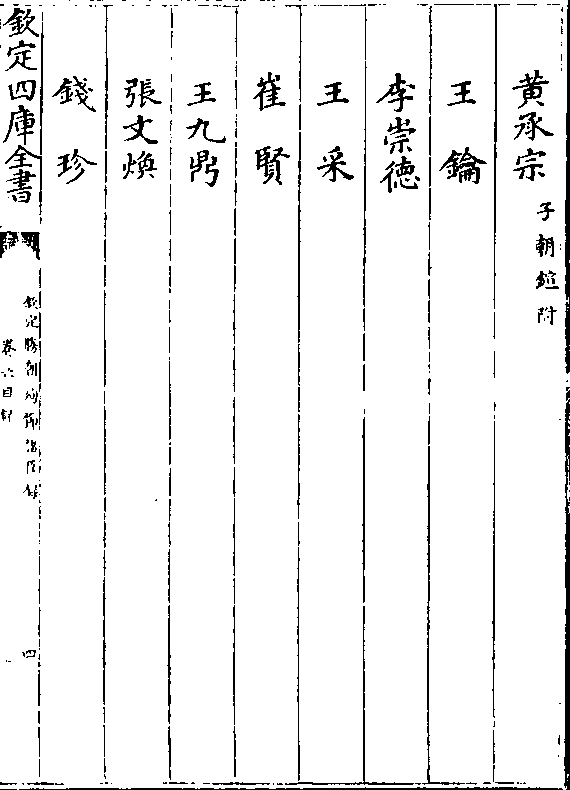 黄承宗 子朝鎧附
王鑰
李崇德
王采
崔賢
王九鼎
張文煥
錢珍
欽定四庫全書
欽定勝朝殉節諸臣錄
卷六目錄
四